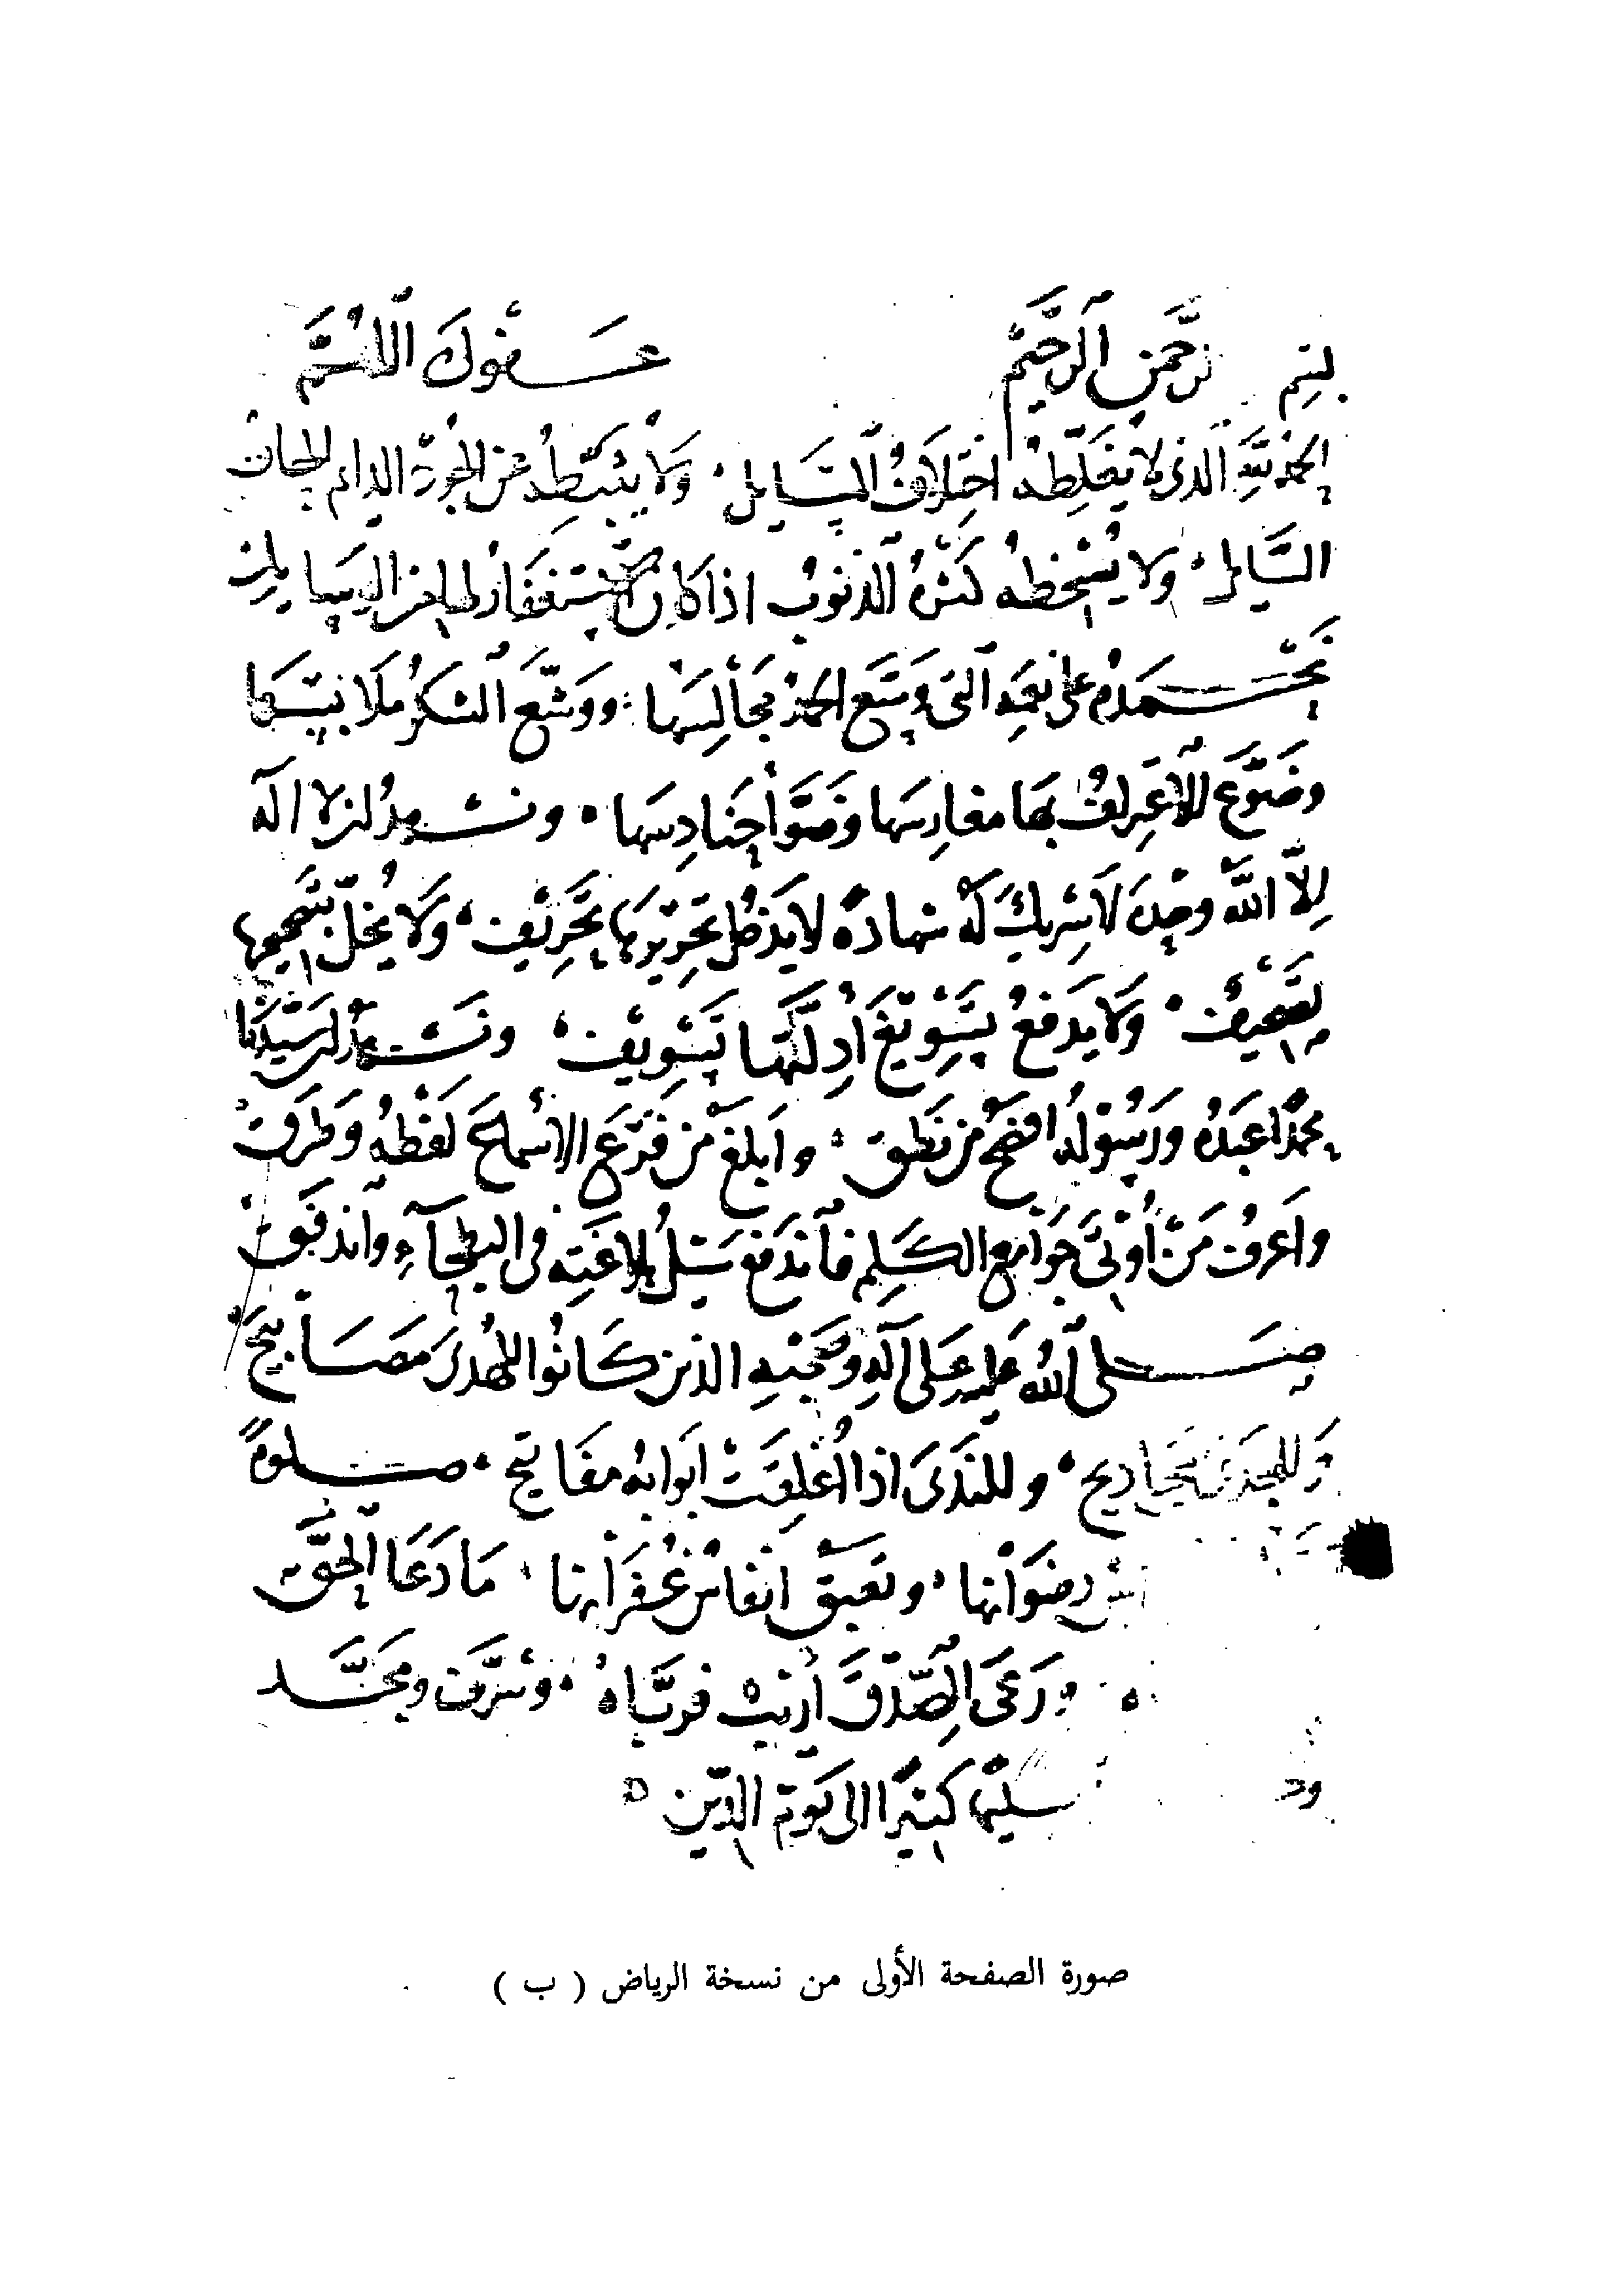 بسم الرحمن الرحيم عفوك اللهم
الحمد لله الذي لا يغلطه اختلاف المسايل ولا يثبطه عن الجود الحاف
السايل ولا يسخطه كثرة الذنوب اذا كان الاستغفار لها من
نحمده على نعمه التي وسع الحمد مجالسها ووشع الشكر ملابسها
وضوع الاعراف بها مغارسها وضوأ حنادسها ونشهد ان لا اله
الا الله وحده لا شريك له شهادة لا يدخل تحريرها تحريف ولا يخل
تصحيف ولا يدفع تسويغ ادلتها تسويف ونشهد ان سيدنا
محمدا عبده ورسوله افصح من نطق وابلغ من قرع الاسماع لفظه وطرق
واعرف من أوتي جوامع الكلم فاندفع سيل بلاغته في البطحآء واندفق
صلى الله عليه وعلى آله وصحبه الذين كانوا للهدى مصابيح
وللجدى مجاديح وللندى اذا أغلقت ابوابه مفاتيح صلوة
رضوانها وتعبق انفاس غفرانها ما دعا الحق
ورعى الصدق أريب فرباه وشرف ومجد
تسليما كثيرا الى يوم الدين
صورة الصفحة الأولى من نسخة الرياض ( ب )